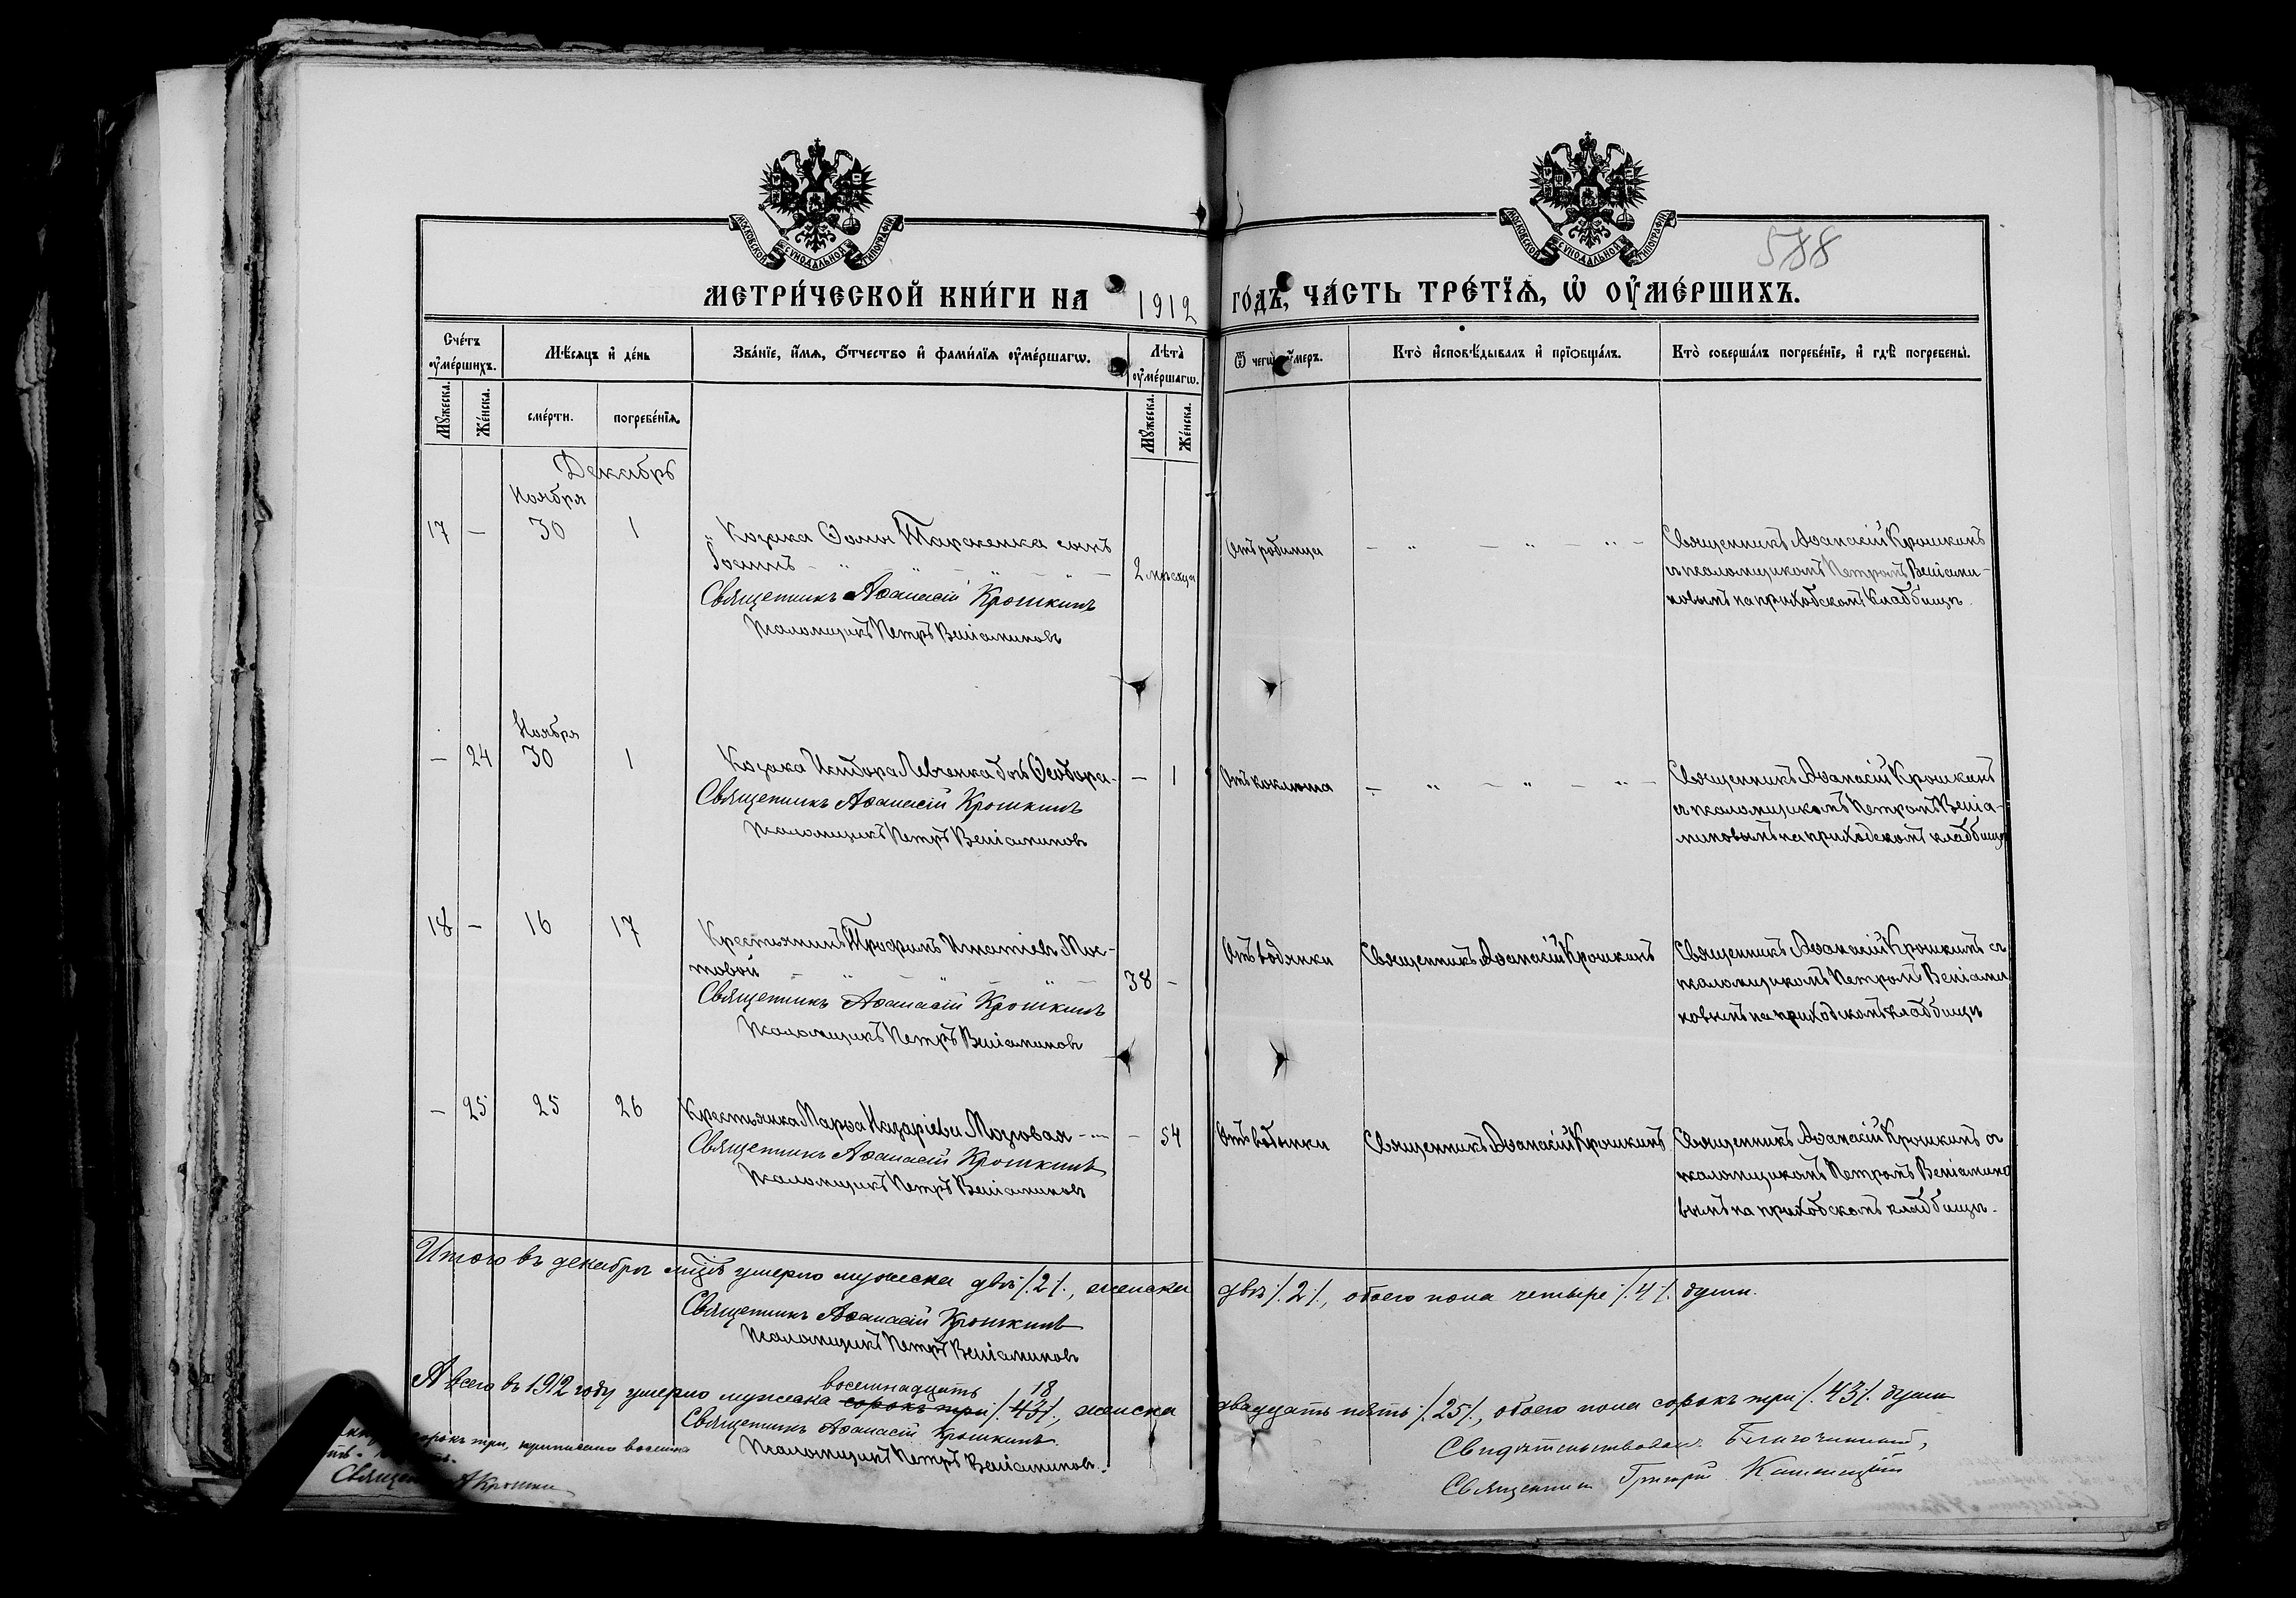 МОСКОВСКОЙ СѴНОДАЛЬНОЙ ТИПОГРАФІИ
МОСКОВСКОЙ СѴНОДАЛЬНОЙ ТИПОГРАФІИ
588
МЕТРИ́ЧЕСКОЙ КНИ́ГИ НА 1912 ГО́ДЪ, ЧА́СТЬ ТРЕ́ТЇѦ, Ѡ ОУ҆МЕ́РШИХЪ.
Сче́тъ оу҆ме́ршихъ.
Мѣ́сяцъ и҆ де́нь
Зва́нїе, и҆́мя, ѻ҆́тчество и҆ фами́лїя оу҆ме́ршагѡ.
Лѣ́та оу҆ме́ршагѡ.
Ѿ чегѡ̀ оу҆́меръ.
Кто̀ и҆сповѣ́дывалъ и҆ прїѡбща́лъ.
Кто̀ соверша́лъ погребе́нїе, и҆ гдѣ̀ погребены̀.
Мꙋ́жеска.
Же́нска.
сме́рти.
погребе́нїя.
Мꙋ́жеска.
Же́нска.
Декабрь
Ноября
17 — 30 1
Козака Ѳомы Тараженка сынъ
Іоаннъ
Священникъ Аѳанасій Крошкинъ
Псаломщикъ Петръ Веніаминовъ
2 мѣсяца
Отъ родимца
Священникъ Аѳанасій Крошкинъ
съ псаломщикомъ Петромъ Веніами-
новымъ на приходскомъ кладбищѣ.
Ноября
— 24 30 1
Козака Исидора Левченка дочь Ѳеодора
Священникъ Аѳанасій Крошкинъ
Псаломщикъ Петръ Веніаминовъ
— 1
Отъ коклюша
Священникъ Аѳанасій Крошкинъ
съ псаломщикомъ Петромъ Веніа-
миновымъ на приходскомъ кладбищѣ
18 — 16 17
Крестьянинъ Трофимъ Игнатіевъ Мос-
товой
Священникъ Аѳанасій Крошкинъ
Псаломщикъ Петръ Веніаминовъ
38 —
Отъ водянки
Священникъ Аѳанасій Крошкинъ
Священникъ Аѳанасій Крошкинъ съ
псаломщикомъ Петромъ Веніами
новымъ на приходскомъ кладбищѣ
— 25 25 26
Крестьянка Марѳа Назаріева Мозговая
Священникъ Аѳанасій Крошкинъ
Псаломщикъ Петръ Веніаминовъ
— 54
Отъ водянки
Священникъ Аѳанасій Крошкинъ
Священникъ Аѳанасій Крошкинъ съ
псаломщикомъ Петромъ Веніамино
вымъ на приходскомъ кладбищѣ.
Итого въ декабрѣ мцѣ умерло мужеска двѣ /.2/., женска двѣ /.2/., обоего пола четыре /.4/. души.
Священникъ Аѳанасій Крошкинъ
Псаломщикъ Петръ Веніаминовъ
восемнадцать 18
А всего въ 1912 году умерло мужеска сорокъ три /.43/., женска двадцать пять /.25/., обоего пола сорокъ три /.43/. души
Священникъ Аѳанасій Крошкинъ.
Псаломщикъ Петръ Веніаминовъ.
сорокъ три, приписано восемна
Священ А Крошки
Свидѣтельствовалъ Благочинный,
Священникъ Григорій